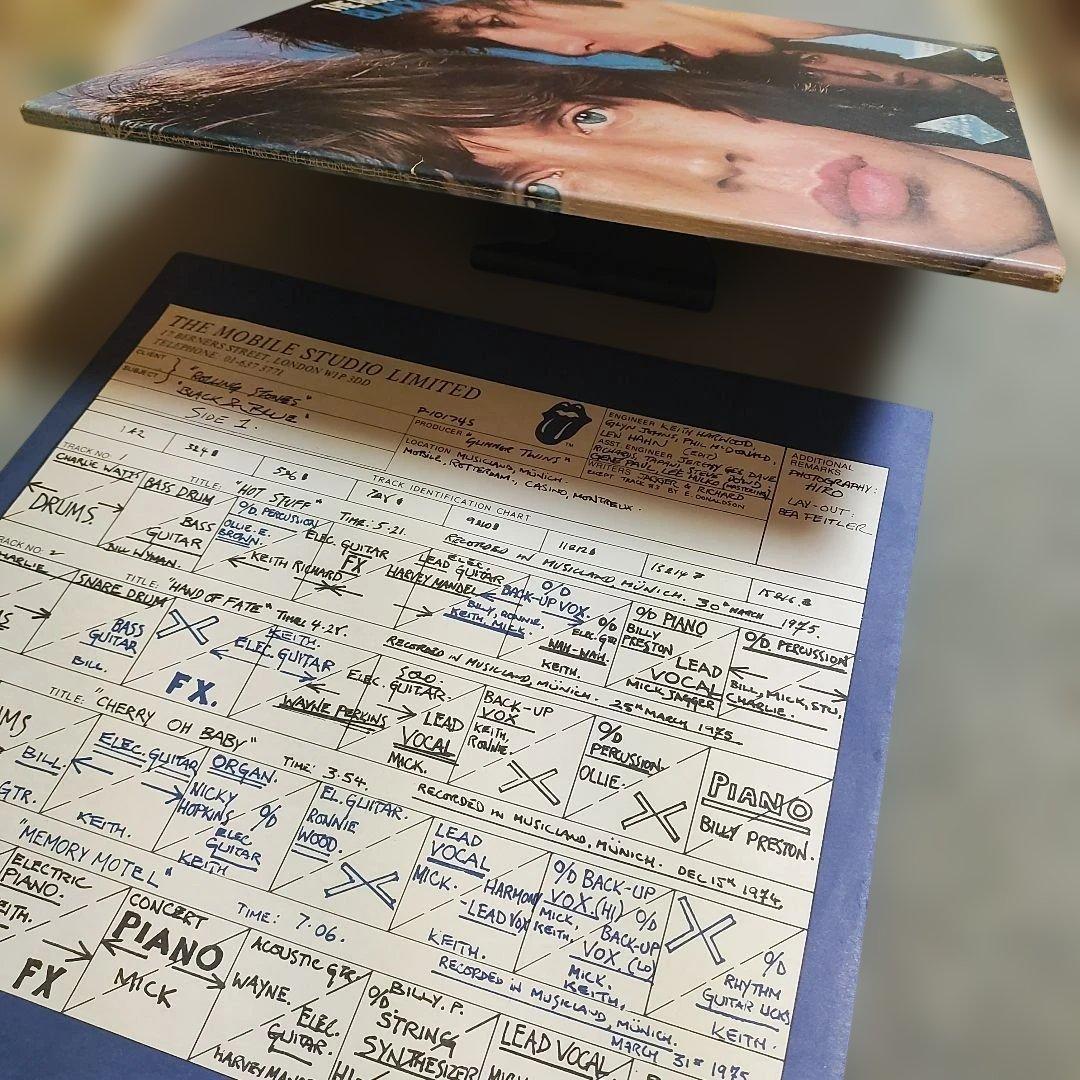 THE MOBILE STUDIO LIMITED
17 BERNERS STREET, LONDON W1P 3DD
TELEPHONE: 01-637 3771
CLIENT
SUBJECT
"ROLLING STONES"
"BLACK & BLUE"
SIDE 1.
P-101745
PRODUCER "GLIMMER TWINS"
LOCATION MUSICLAND, MÜNICH.
MOBILE, ROTTERDAM, CASINO, MONTREUX.
TM
ENGINEER KEITH HARWOOD,
GLYN JOHNS, PHIL McDONALD,
LEW HAHN
ASST ENGINEER JEREMY GEE, DAVE
GENE PAUL, LEE
(MASTERING)
WRITERS JAGGER & RICHARD
EXCEPT TRACK #3 BY E. DONALDSON
ADDITIONAL
REMARKS
PHOTOGRAPHY:
HIRO
LAY-OUT:
BEA FEITLER
TRACK IDENTIFICATION CHART
TRACK NO. 1
TITLE: "HOT STUFF" TIME: 5.21.
RECORDED IN MUSICLAND MÜNICH. 30TH MARCH 1975.
CHARLIE WATTS
DRUMS.
BASS DRUM
BASS
GUITAR
BILL WYMAN.
O/D PERCUSSION
OLLIE. E.
BROWN.
KEITH RICHARD
ELEC. GUITAR
FX
LEAD ELEC. GUITAR
HARVEY MANDEL
O/D
BACK-UP VOX.
BILLY, RONNIE,
KEITH, MICK.
O/D
ELEC. GTR
WAH-WAH.
KEITH.
O/D PIANO
BILLY
PRESTON
LEAD
VOCAL
MICK JAGGER
O/D PERCUSSION
BILL, MICK, STU,
CHARLIE.
TRACK NO. 2
TITLE: "HAND OF FATE" TIME: 4.28.
RECORDED IN MUSICLAND, MÜNICH. 25TH MARCH 1975.
SNARE DRUM
BASS
GUITAR
BILL.
FX.
KEITH.
ELEC. GUITAR
SOLO.
ELEC. GUITAR.
WAYNE PERKINS
LEAD
VOCAL
MICK.
BACK-UP
VOX
KEITH,
RONNIE.
O/D
PERCUSSION
OLLIE.
PIANO
BILLY PRESTON.
TITLE: "CHERRY OH BABY" TIME: 3.54.
RECORDED IN MUSICLAND, MÜNICH. DEC 15TH 1974.
BILL.
GTR.
ELEC. GUITAR
KEITH.
ORGAN.
NICKY
HOPKINS
O/D
ELEC
GUITAR
KEITH
EL. GUITAR.
RONNIE
WOOD.
LEAD
VOCAL
MICK.
HARMONY
-LEAD VOX
KEITH.
O/D BACK-UP
VOX. (HI)
MICK,
KEITH,
O/D
BACK-UP
VOX. (LO)
MICK.
KEITH,
O/D
RHYTHM
GUITAR LICKS
KEITH.
"MEMORY MOTEL" TIME: 7.06.
RECORDED IN MUSICLAND, MÜNICH.
MARCH 31ST 1975
ELECTRIC
PIANO.
FX
CONCERT
PIANO
MICK
ACOUSTIC GTR
WAYNE.
ELEC.
GUITAR.
O/D BILLY. P.
STRING
SYNTHESIZER
LEAD VOCAL